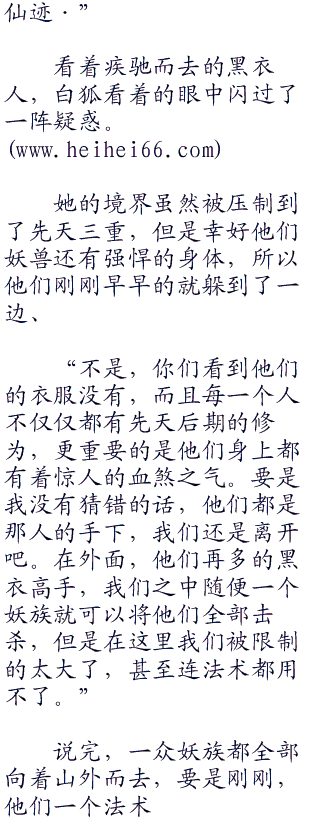 仙迹·”
看着疾驰而去的黑衣
人，白狐看着的眼中闪过了
一阵疑惑。
(www.heihei66.com)
她的境界虽然被压制到
了先天三重，但是幸好他们
妖兽还有强悍的身体，所以
他们刚刚早早的就躲到了一
边、
“不是，你们看到他们
的衣服没有，而且每一个人
不仅仅都有先天后期的修
为，更重要的是他们身上都
有着惊人的血煞之气。要是
我没有猜错的话，他们都是
那人的手下，我们还是离开
吧。在外面，他们再多的黑
衣高手，我们之中随便一个
妖族就可以将他们全部击
杀，但是在这里我们被限制
的太大了，甚至连法术都用
不了。”
说完，一众妖族都全部
向着山外而去，要是刚刚，
他们一个法术